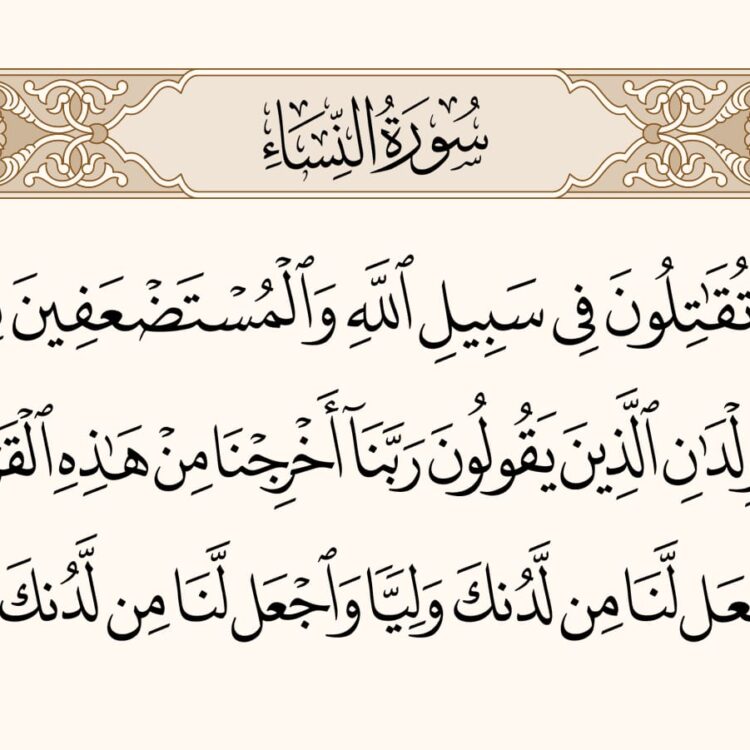 سُورَةُ النِّسَاءِ
تُقَٰتِلُونَ فِى سَبِيلِ ٱللَّهِ وَٱلْمُسْتَضْعَفِينَ
ٱلَّذِينَ يَقُولُونَ رَبَّنَآ أَخْرِجْنَا مِنْ هَٰذِهِ
لَّنَا مِن لَّدُنكَ وَلِيًّا وَٱجْعَل لَّنَا مِن لَّدُنكَ